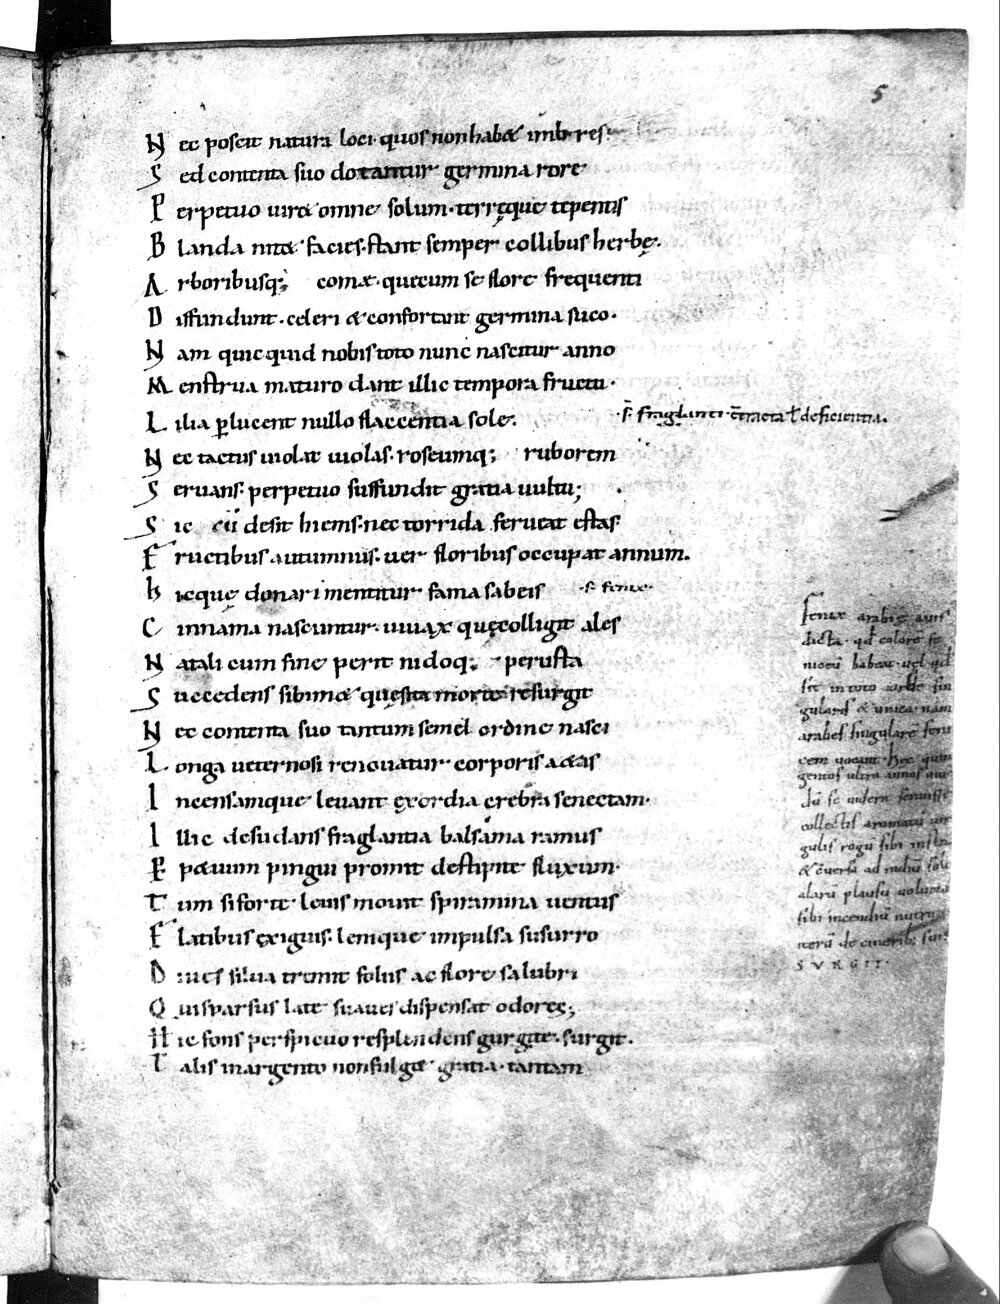 5
Nec poscit natura loci. quos non habet imbres.
Sed contenta suo dotantur germina rore
Perpetuo viret omne solum. terręque tepentis
Blanda nitet facies. stant semper collibus herbę.
Arboribusq; comæ. quęcum se flore frequenti
Diffundunt. celeri & confortant germina suco.
Nam quicquid nobis toto nunc nascitur anno
Menstrua maturo dant illic tempora fructu.
Lilia plucent nullo flaccentia sole. .s. fraglanti. deficientia.
Nec tactus violat violas. roseumq; ruborem
Servans. perpetuo suffundit gratia vultu;
Sic cū desit hiems. nec torrida ferveat estas
Fructibus autumnus. ver floribus occupat annum.
hicque donari mentitur fama sabeis .s. fenix.
Cinnāma nascuntur. vivax quęcolligit ales
Natali cum fine perit nidoq; perusta
Succedens sibimet quęsita morte resurgit
Nec contenta suo tantum semel ordine nasci
Longa veternosi renovatur corporis aetas
Incensamque levant exordia crebra senectam.
Illic desudans fraglantia balsāma ramus
Perpetuum pingui promit destipite fluxum.
Tum si forte. levis movit spiramina ventus
Flatibus exiguis. lenique impulsa susurro
Dives silva tremit foliis ac flore salubri
Qui sparsus late suaves dispensat odores;
Hic fons perspicuo resplendens gurgite. surgit.
Talis in argento non fulget gratia. tantam
fenix arabię avis
dicta. qd colore fe
niceū habeat. vel qd
sit in toto orbe sin
gularis & unica. nam
arabes singulare feni
cem vocant. hec quin
gentos ultra annos
dū se viderit senuisse
collectis aromatū vir
gulis rogū sibi
& cōversa ad radiū solis
alarū plausu volunta
sibi incendiū
iterū de cinerib; suis
SVRGIT.